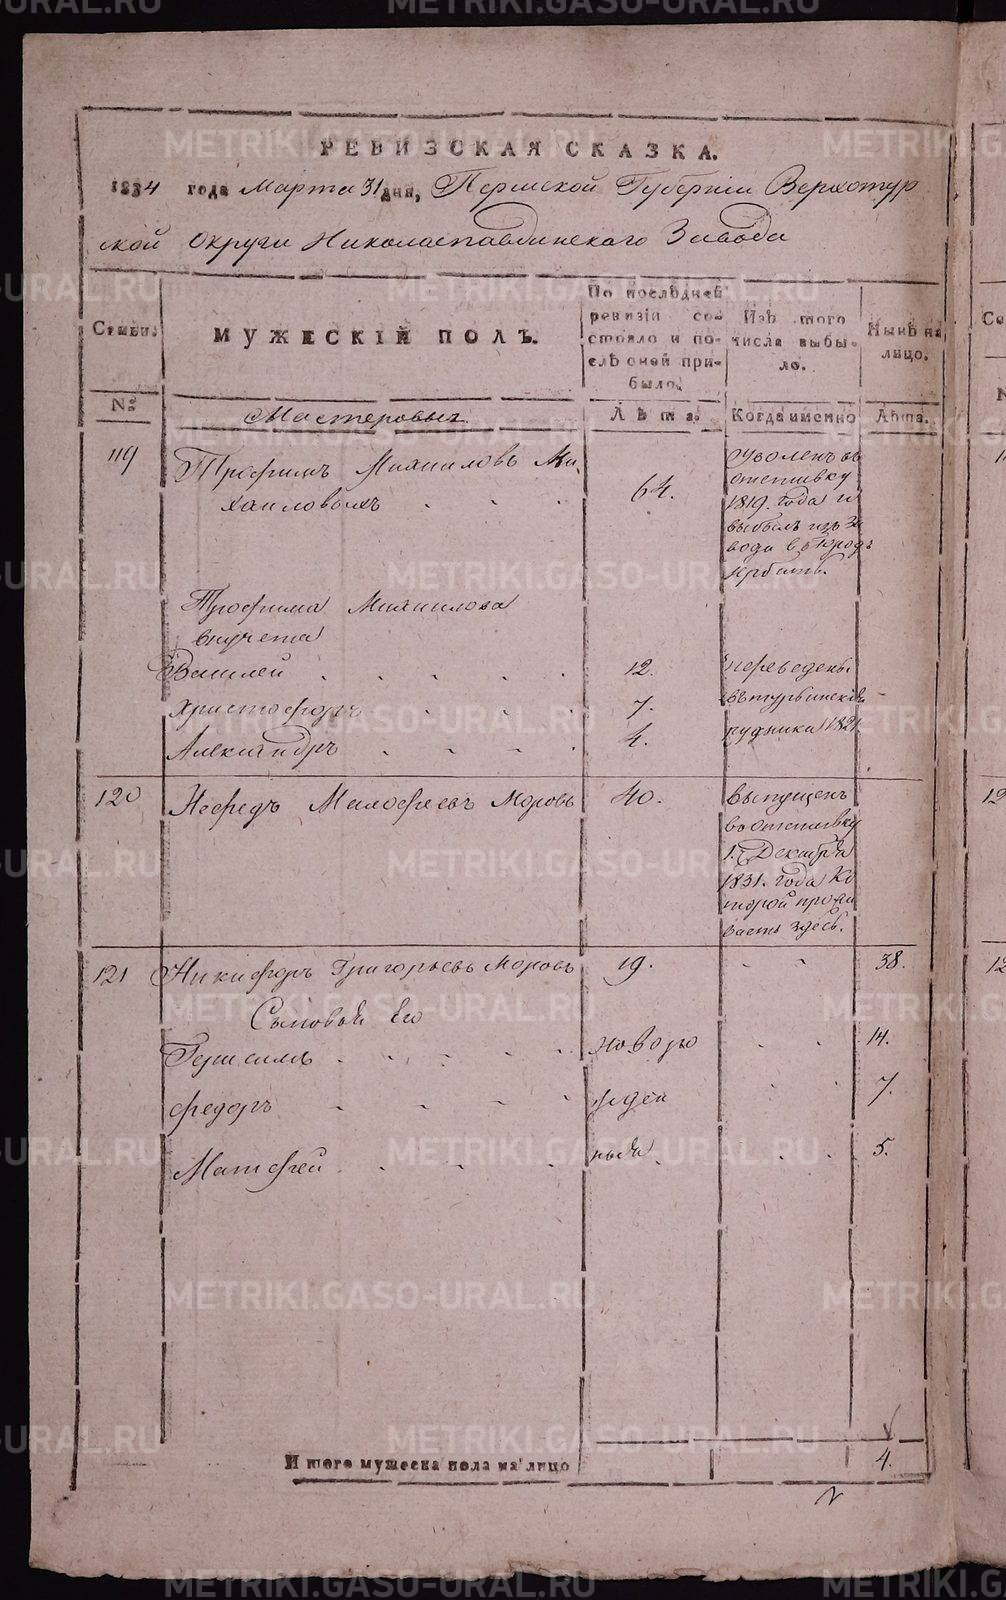 METRIKI.GASO-URAL.RU
РЕВИЗСКАЯ СКАЗКА.
1834 года Марта 31 дня, Пермской Губернии Верхотур
ской округи Николаепавдинскаго Завода
Семьи.
МУЖЕСКІЙ ПОЛЪ.
По послѣдней
ревизіи со-
стояло и по-
слѣ оней при-
было.
Изъ того
числа выбы-
ло.
Нынѣ на
лицо.
№
Мастеровых
Лѣта.
Когда именно
Лѣта.
119
Трофимъ Михаиловъ Ми
хаиловыхъ
64.
уволенъ въ
отставку
1819. года и
выбылъ изъ за
вода в городъ
Ирбитъ.
Трофима Михаилова
внучета
Василей 12.
Христофоръ 7.
Александръ 4.
переведены
в турьинскія
рудники 1821.
120
Нефедъ Малофеевъ Моровъ 40.
Выпущенъ
в отставку
1. Декабря
1831. года Ко
торой прожи
ваетъ здѣсь.
121
Никифоръ Григорьевъ Моровъ 19. 38.
Сыновья Его
Герасимъ новоро 14.
федоръ жден 7.
Матфей ныя 5.
Итого мужеска пола на лицо 4.